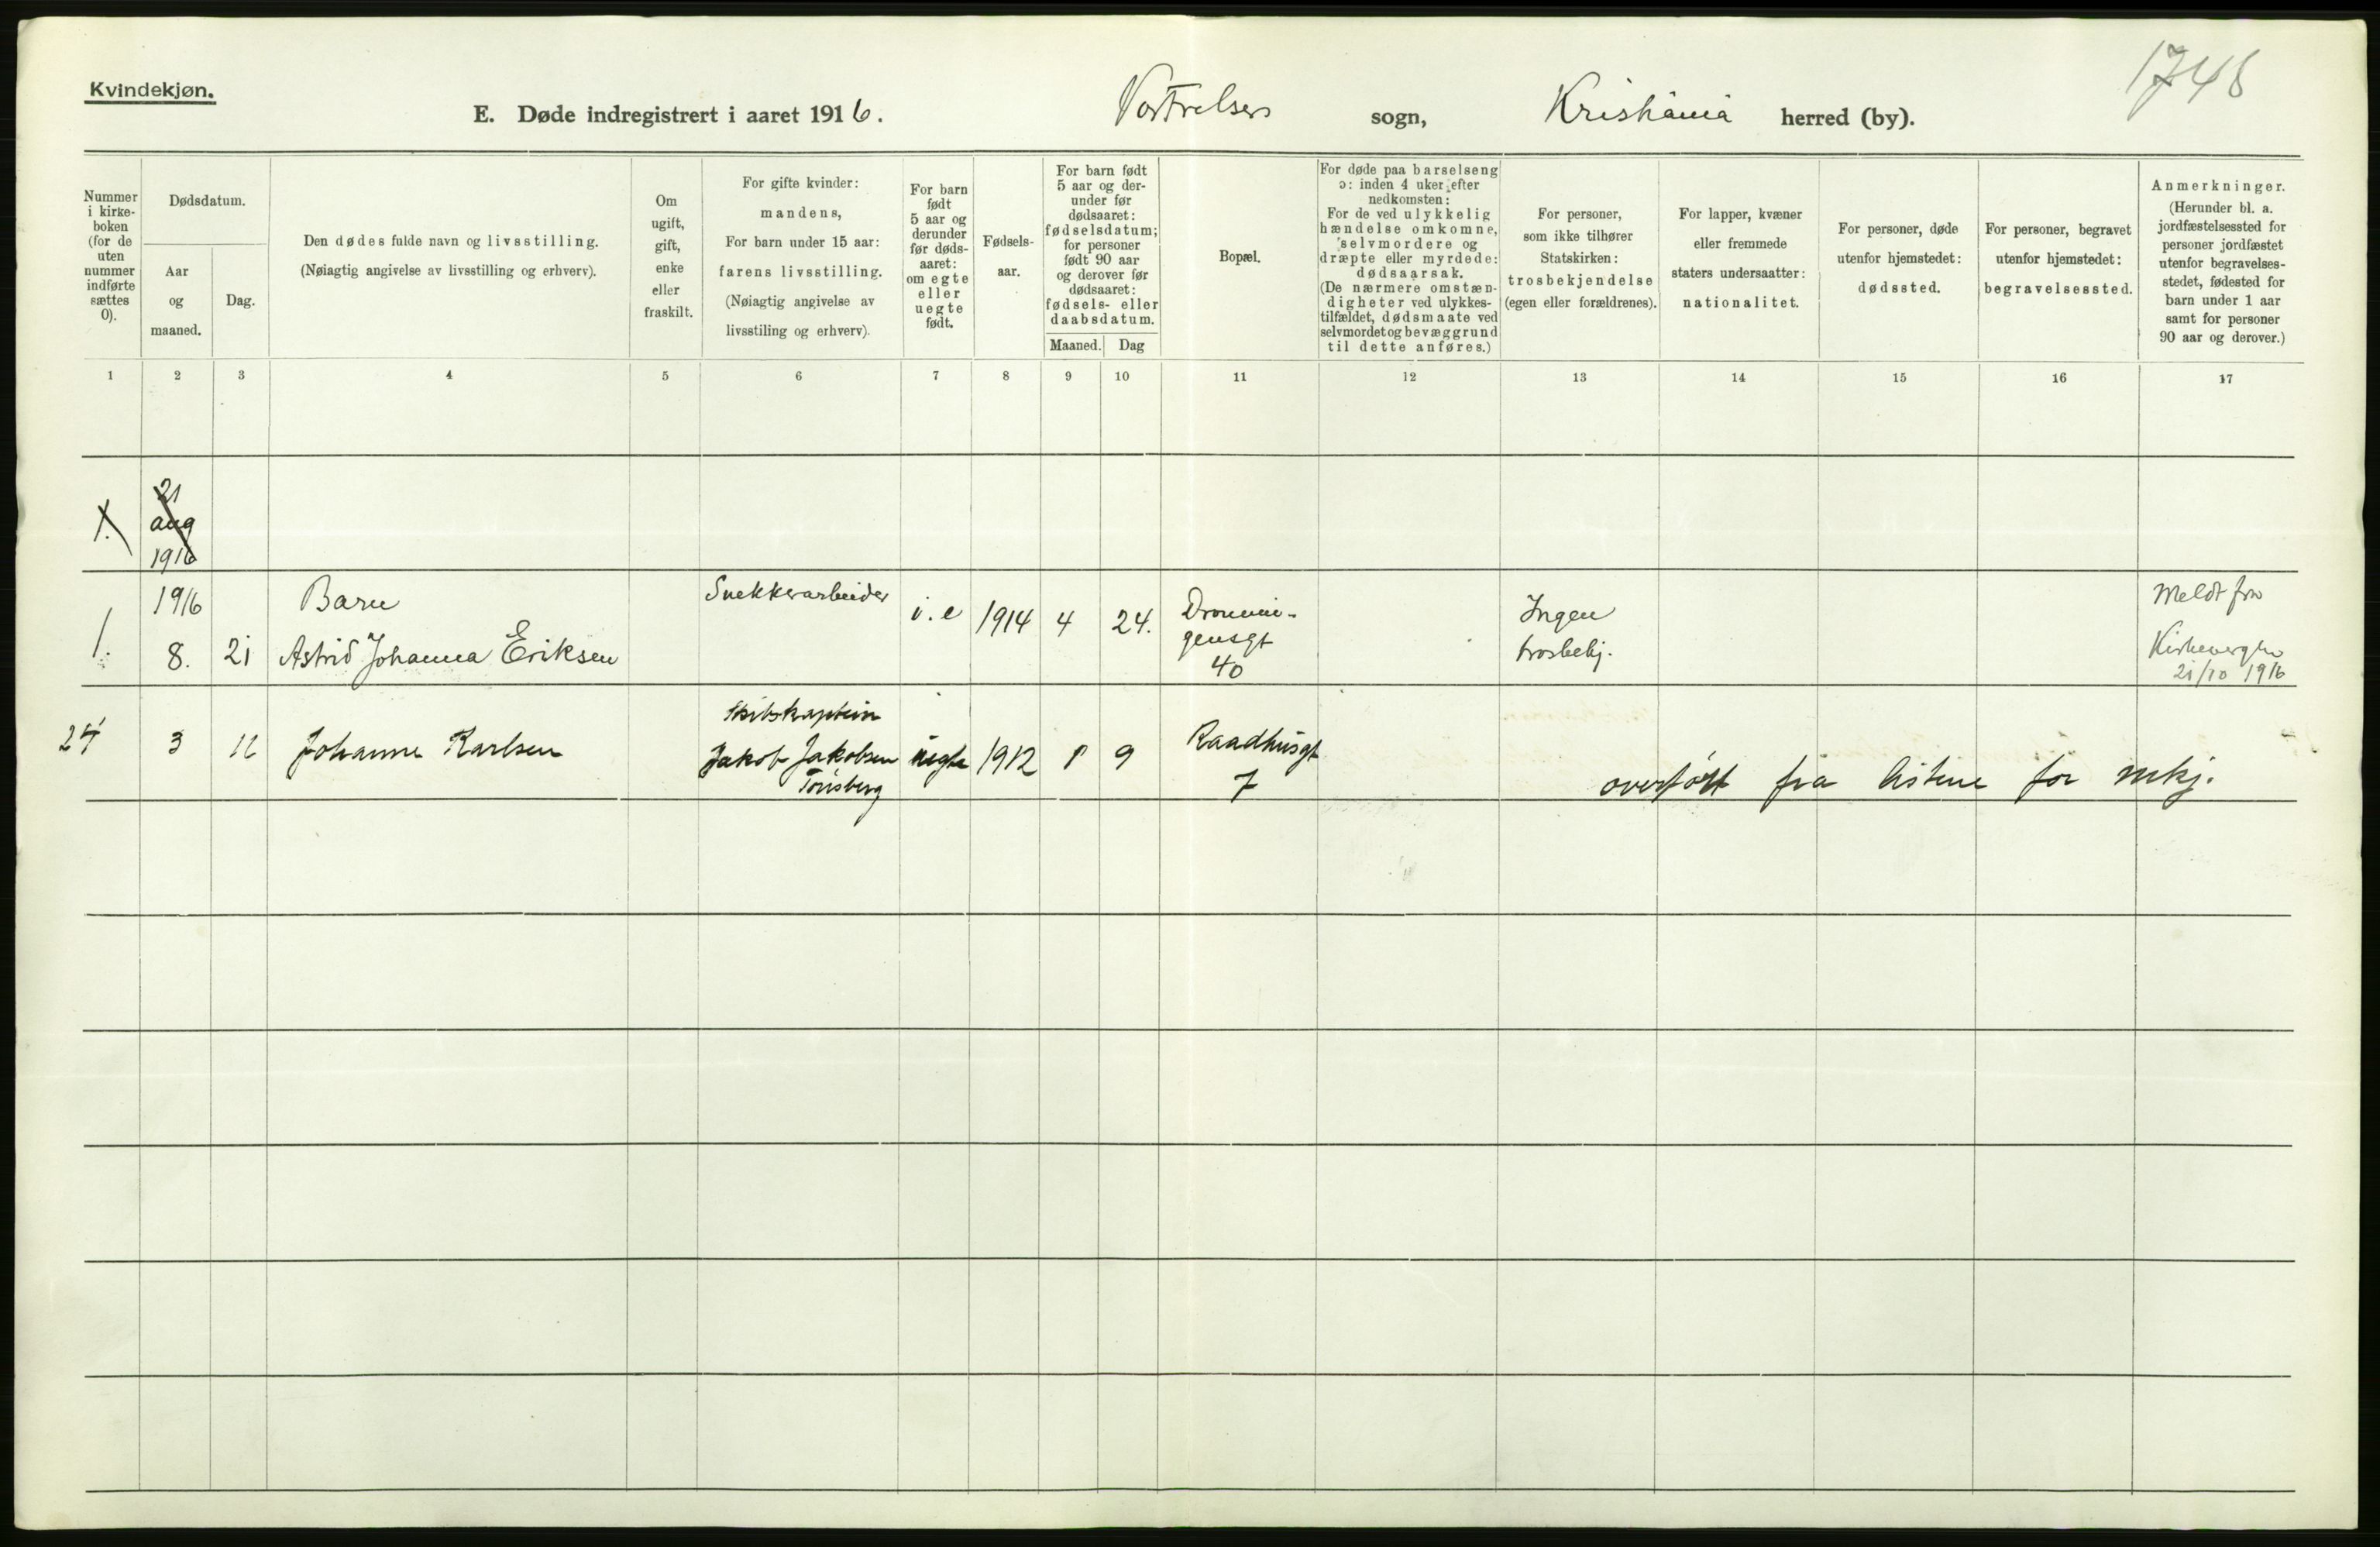 1748
Kvindekjøn.
E. Døde indregistrert i aaret 1916. Vor Frelsers sogn, Kristiania herred (by).
Nummer i kirke- boken (for de uten nummer indførte sættes 0).
Dødsdatum.
Aar og maaned.
Dag.
Den dødes fulde navn og livsstilling.
(Nøiagtig angivelse av livsstilling og erhverv).
Om ugift, gift, enke eller fraskilt.
For gifte kvinder: mandens,
For barn under 15 aar: farens livsstilling.
(Nøiagtig angivelse av livsstiling og erhverv).
For barn født 5 aar og derunder før døds- aaret: om egte eller uegte født.
Fødsels- aar.
For barn født 5 aar og der- under før dødsaaret: fødselsdatum; for personer født 90 aar og derover før dødsaaret: fødsels- eller daabsdatum.
Maaned. Dag
Bopæl.
For døde paa barselseng ɔ: inden 4 uker efter nedkomsten:
For de ved ulykkelig hændelse omkomne, selvmordere og dræpte eller myrdede: dødsaarsak.
(De nærmere omstæn- digheter ved ulykkes- tilfældet, dødsmaate ved selvmordet og bevæggrund til dette anføres.)
For personer, som ikke tilhører Statskirken: trosbekjendelse (egen eller forældrenes).
For lapper, kvæner eller fremmede staters undersaatter: nationalitet.
For personer, døde utenfor hjemstedet: dødssted.
For personer, begravet utenfor hjemstedet: begravelsessted.
Anmerkninger.
(Herunder bl. a. jordfæstelsessted for personer jordfæstet utenfor begravelses- stedet, fødested for barn under 1 aar samt for personer 90 aar og derover.)
1 2 3 4 5 6 7 8 9 10 11 12 13 14 15 16 17
1. 21 aug 1916
1916 Barn Snekkerarbeider Meldt fra
1. 8. 21 Astrid Johanna Eriksen i.e 1914 4 24. Dronnin- gensgt 40 Ingen trosbekj. Kirkevergen
21/10 1916
Skibskaptein
24 3 11 Johanne Karlsen Jakob Jakobsen uegte 1912 8 9 Raadhusgt 7
Tönsberg
overført fra listene for mkj.